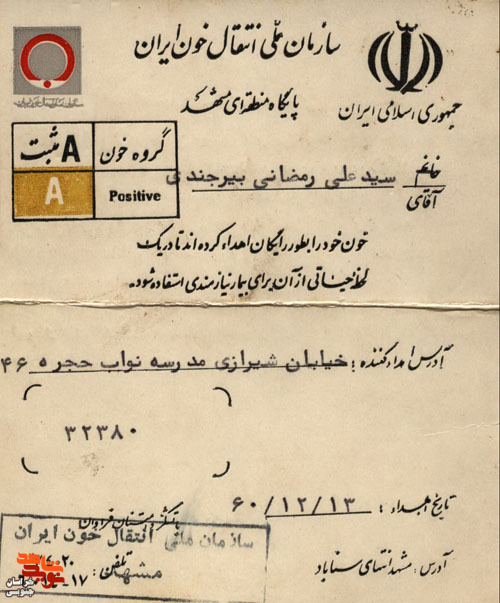 سازمان ملی انتقال خون ایران
جمهوری اسلامی ایران
پایگاه منطقه‌ای مشهد
گروه خون A مثبت
A Positive
خانم
آقای
سید علی رمضانی بیرجندی
خون خود را بطور رایگان اهداء کرده اند تا در یک
لحظه حیاتی از آن برای بیمار نیازمندی استفاده شود.
آدرس اهداء کننده : خیابان شیرازی مدرسه نواب حجره ۴۶
۳۲۳۸۰
تاریخ اهداء : ۶۰/۱۲/۱۳
با تشکر فراوان
سازمان ملی انتقال خون ایران
مشهد
آدرس : مشهد انتهای سناباد
تلفن :
خراسان جنوبی